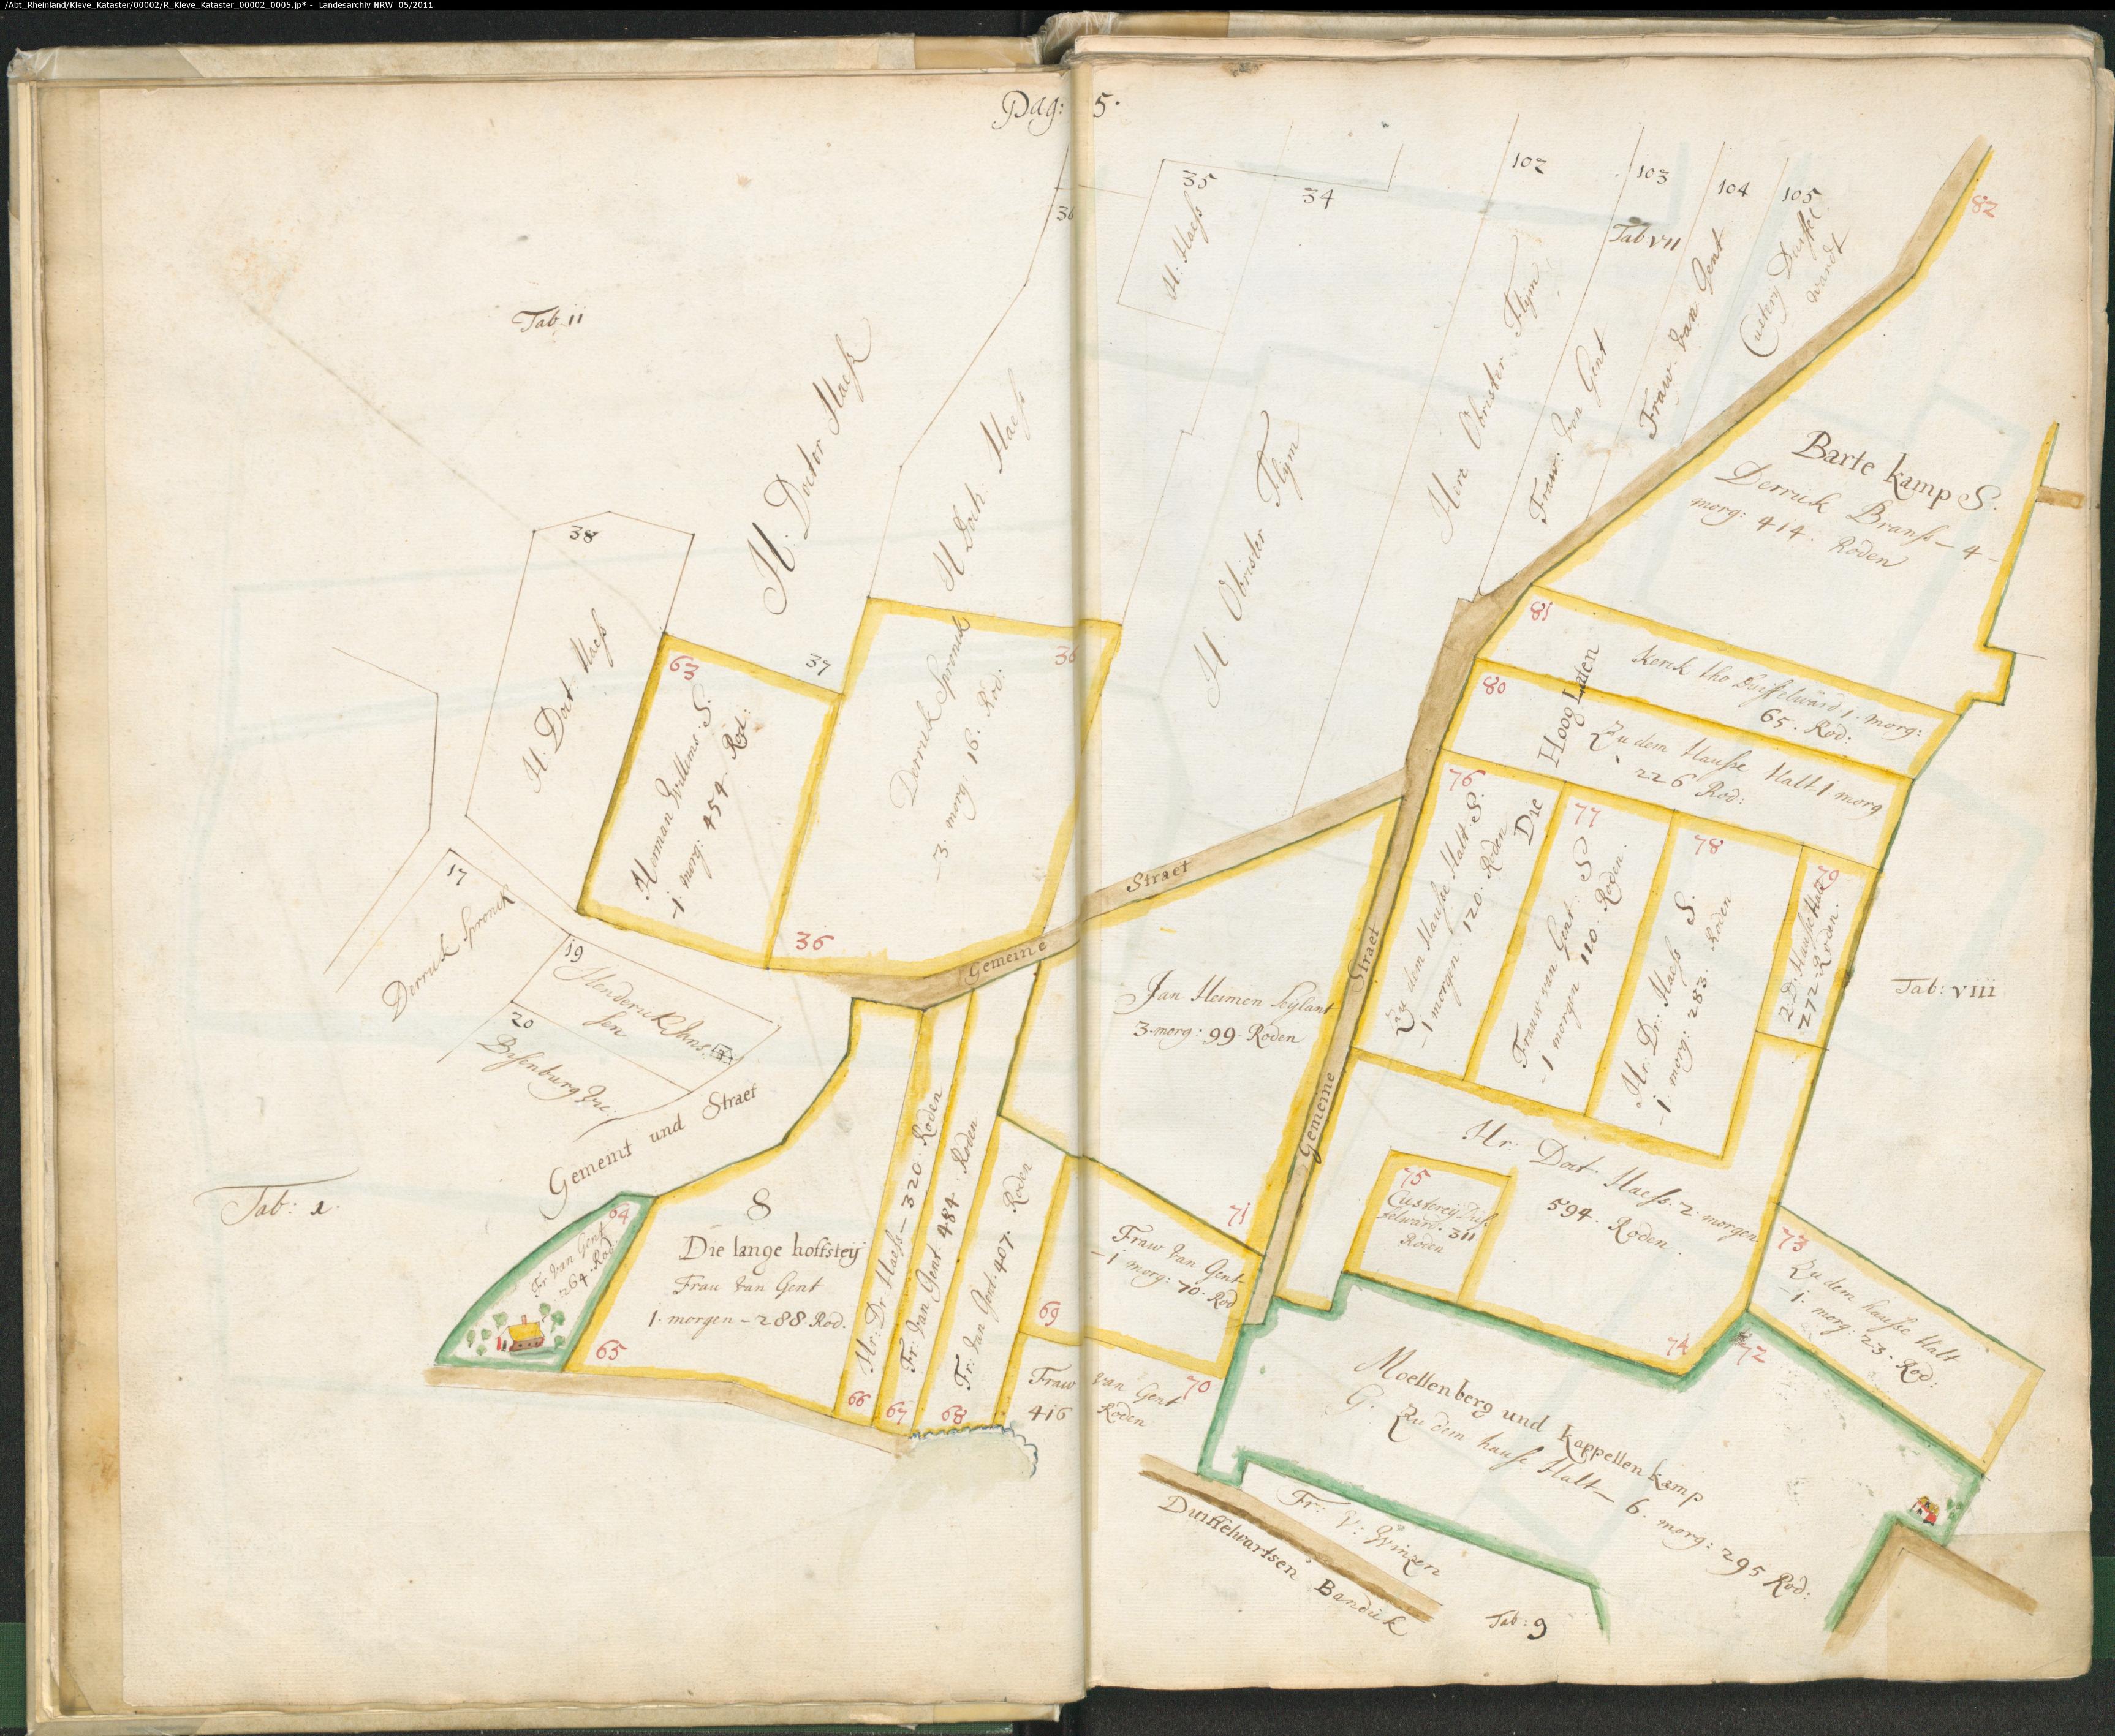 /Abt_Rheinland/Kleve_Kataster/00002/R_Kleve_Kataster_00002_0005.jp* - Landesarchiv NRW 05/2011
Pag: 5.
Tab ii
38
H. Doct Haeß
H. Doctor Haeß
37
H Doct. Haeß
36
35
H: Haeß
34
H. Obrister Flÿm
102
Herr Obrister Flÿm
103
Tab VII
Fraw. Van Gent
104
Fraw. Van Gent
105
Custerij Duiffel
wardt
82
Barte kamp S.
Derrick Branß — 4 —
morg: 414. Roden
81
Kerck tho Duiffelward 1. morg:
65. Rod:
80
Zu dem Hauße Halt 1 morg
226 Rod:
Die Hoog Laten
63
Herman Willems. S.
1. morg: 454 Rod:
36
Derrick Spronck
3. morg: 16. Rod:
36
17
Derrick Spronck
19
Henderick Jans
sen
20
Gemeint und Straet
Tab: 1.
Gemeine Straet
Gemeine Straet
Jan Heimen
3 morg: 99 Roden
71
76
Zu dem Hauße Halt S.
1 morgen 120. Roden
77
S
Frauw van Gent
1 morgen 110. Roden.
78
S.
Hr: Dr: Haeß
1. morg: 283. Roden
79
Z: D: Hauße Halt
272 Roden.
Tab: VIII
64
Fr Van Gent
264 Rod:
S
Die lange hoffsteÿ
Frau Van Gent
1. morgen — 288 Rod.
65
Hr: Dr Haeß — 320. Roden
66
Fr: Van Gent. 484. Roden
67
Fr: Van Gent. 407. Roden
68
Fraw Van Gent
1 morg: 70. Rod
69
Fraw Van Gent
416 Roden
70
Hr. Doct. Haeß. 2. morgen
594. Roden.
74
75
Custereÿ Duf
felward. 311
Roden
73
Zu dem hauße Halt
1. morg: 23. Rod:
72
Moellenberg und kappellen kamp
G. Zu dem hause Halt — 6. morg: 295 Rod:
Fr: V: Winzen
Duiffelwartsen Bandick
Tab: 9